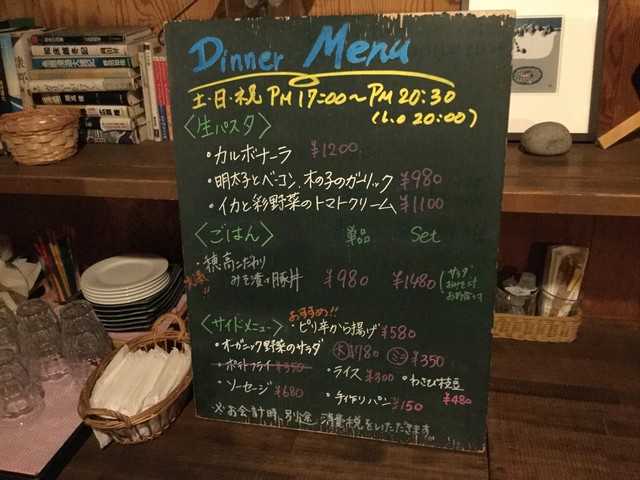 Dinner Menu
土・日・祝 PM17:00～PM20:30
(L.O 20:00)
〈生パスタ〉
・カルボナーラ ¥1200
・明太子とベーコン、木の子のガーリック ¥980
・イカと彩野菜のトマトクリーム ¥1100
〈ごはん〉 単品 Set
・穂高こだわり
みそ漬け豚丼 ¥980 ¥1480 (サラダ
おみそ汁
お新香付
〈サイドメニュー〉
おすすめ!!
・ピリ辛から揚げ ¥580
・オーガニック野菜のサラダ 大 ¥780 ミニ ¥350
・ポテトフライ ¥350
・ライス ¥300 ・わさび枝豆 ¥480
・ソーセージ ¥680
・手作りパン ¥150
※お会計時、別途 消費税をいただきます。